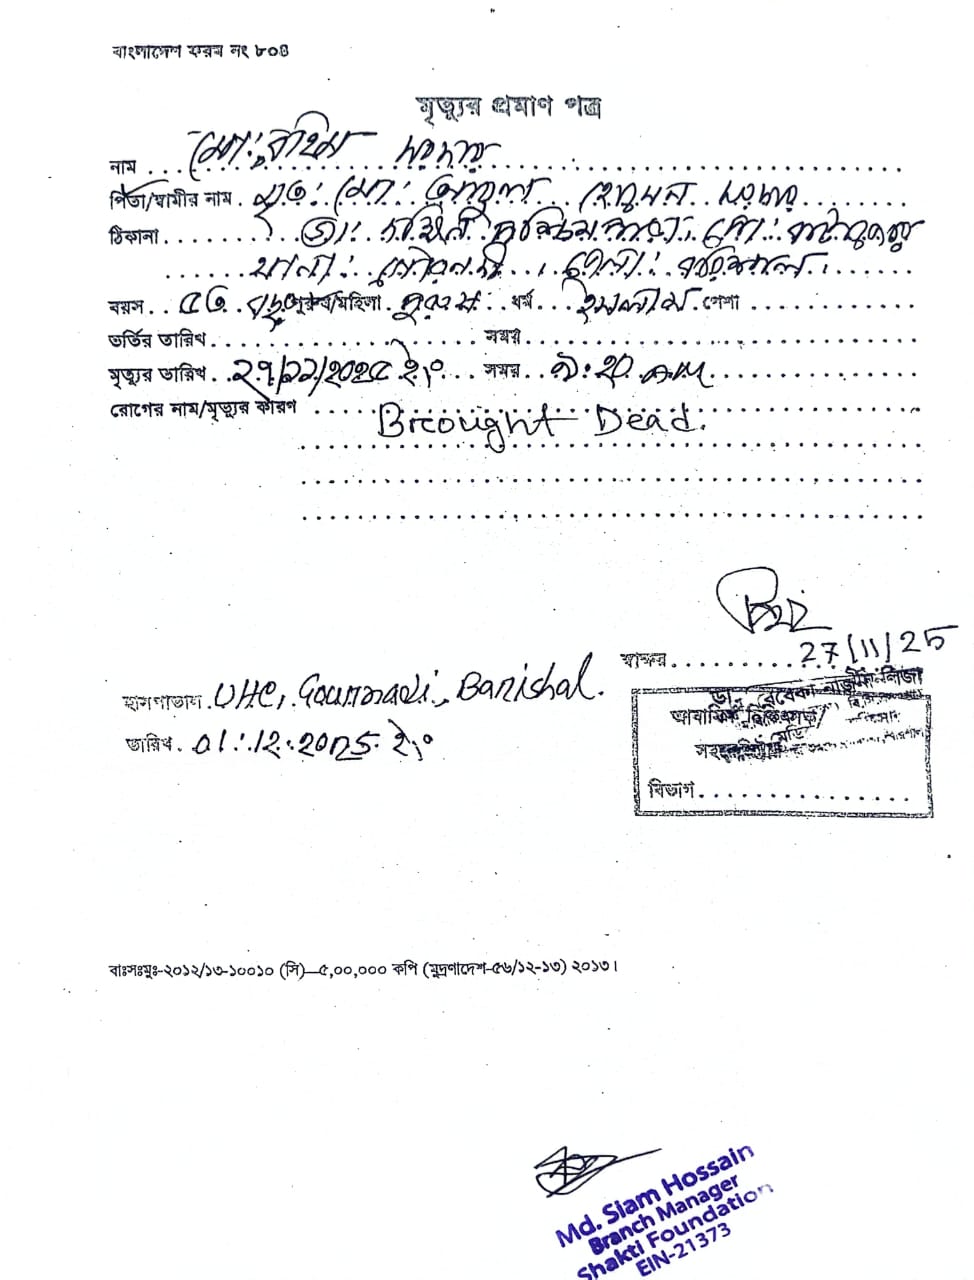 বাংলাদেশ ফরম নং ৮০৪
মৃত্যুর প্রমাণ পত্র
নাম মো: রহিম সরদার
পিতা/স্বামীর নাম মৃত: মো: আবুল হোসেন সরদার
ঠিকানা সাং: দক্ষিণ পশ্চিমপাড়া পো:
থানা: গৌরনদী, জেলা: বরিশাল।
বয়স ৫৩ বছর পুরুষ/মহিলা পুরুষ ধর্ম ইসলাম পেশা
ভর্তির তারিখ সময়
মৃত্যুর তারিখ ২৭/১১/২০২৫ ইং সময় ৯:২০ AM
রোগের নাম/মৃত্যুর কারণ
Brought Dead.
27/11/25
স্বাক্ষর
হাসপাতাল UHC, Gournadi, Barishal.
ডা. রেবেকা
আবাসিক
তারিখ 01.12.2025 ইং
বিভাগ
বাঃসঃমুঃ-২০১২/১৩-১০০১০ (সি)—৫,০০,০০০ কপি (মুদ্রণাদেশ-৫৬/১২-১৩) ২০১৩।
Md. Siam Hossain
Branch Manager
Shakti Foundation
EIN-21373